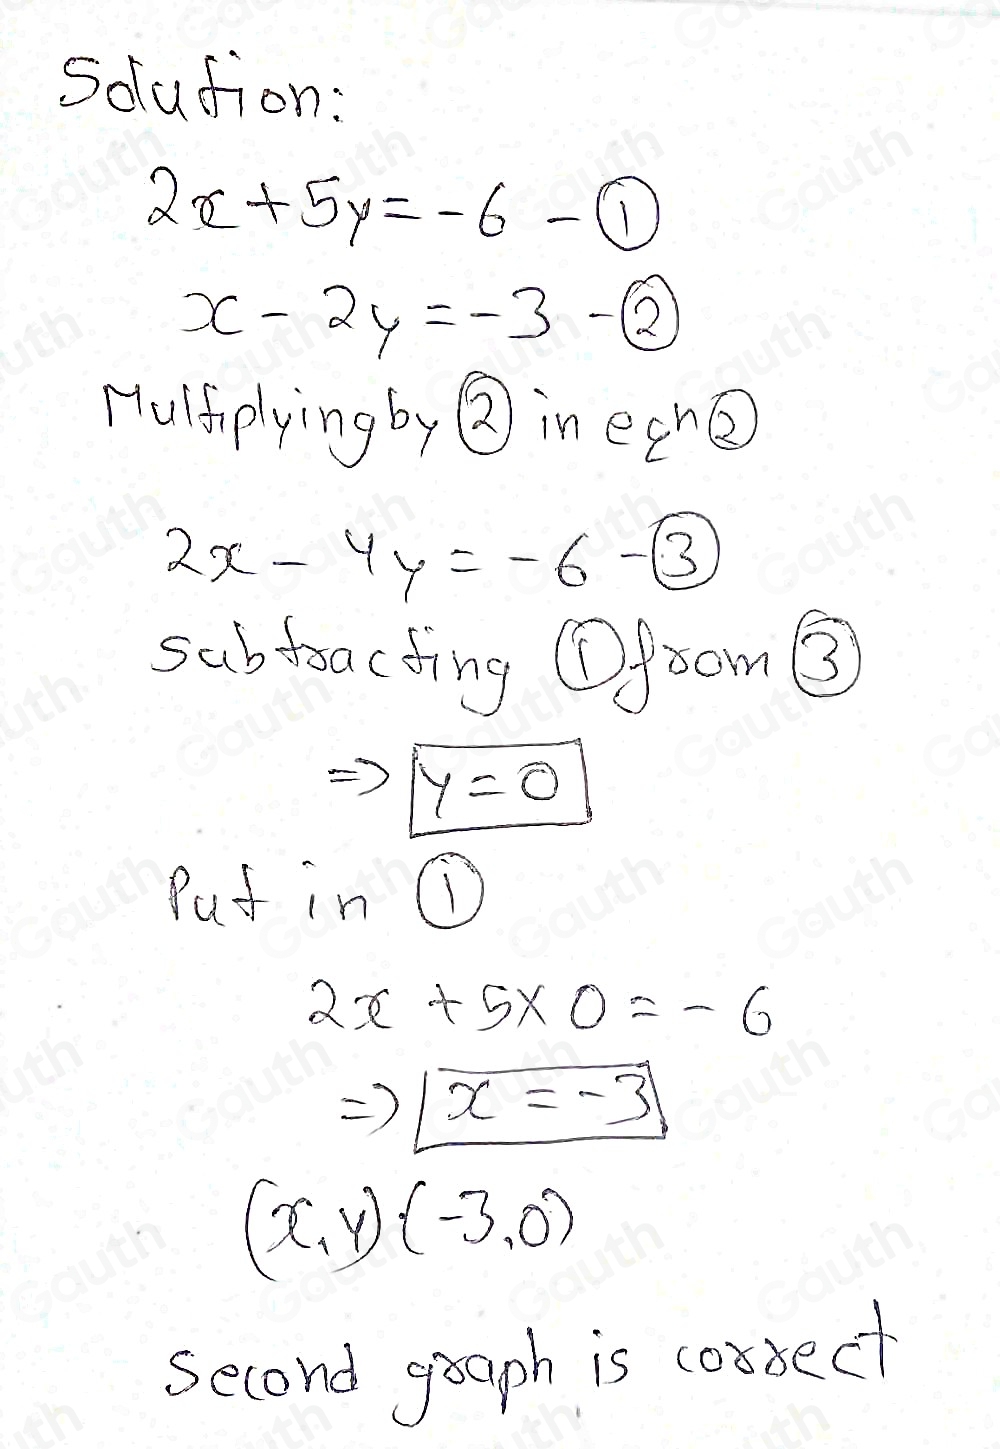 Solution:
2x + 5y = -6 - ①
x - 2y = -3 - ②
Multiplying by ② in eqn ②
2x - 4y = -6 - ③
Subtracting ① from ③
=> y = 0
Put in ①
2x + 5 × 0 = -6
=> x = -3
(x, y) (-3, 0)
Second graph is correct
Gauth